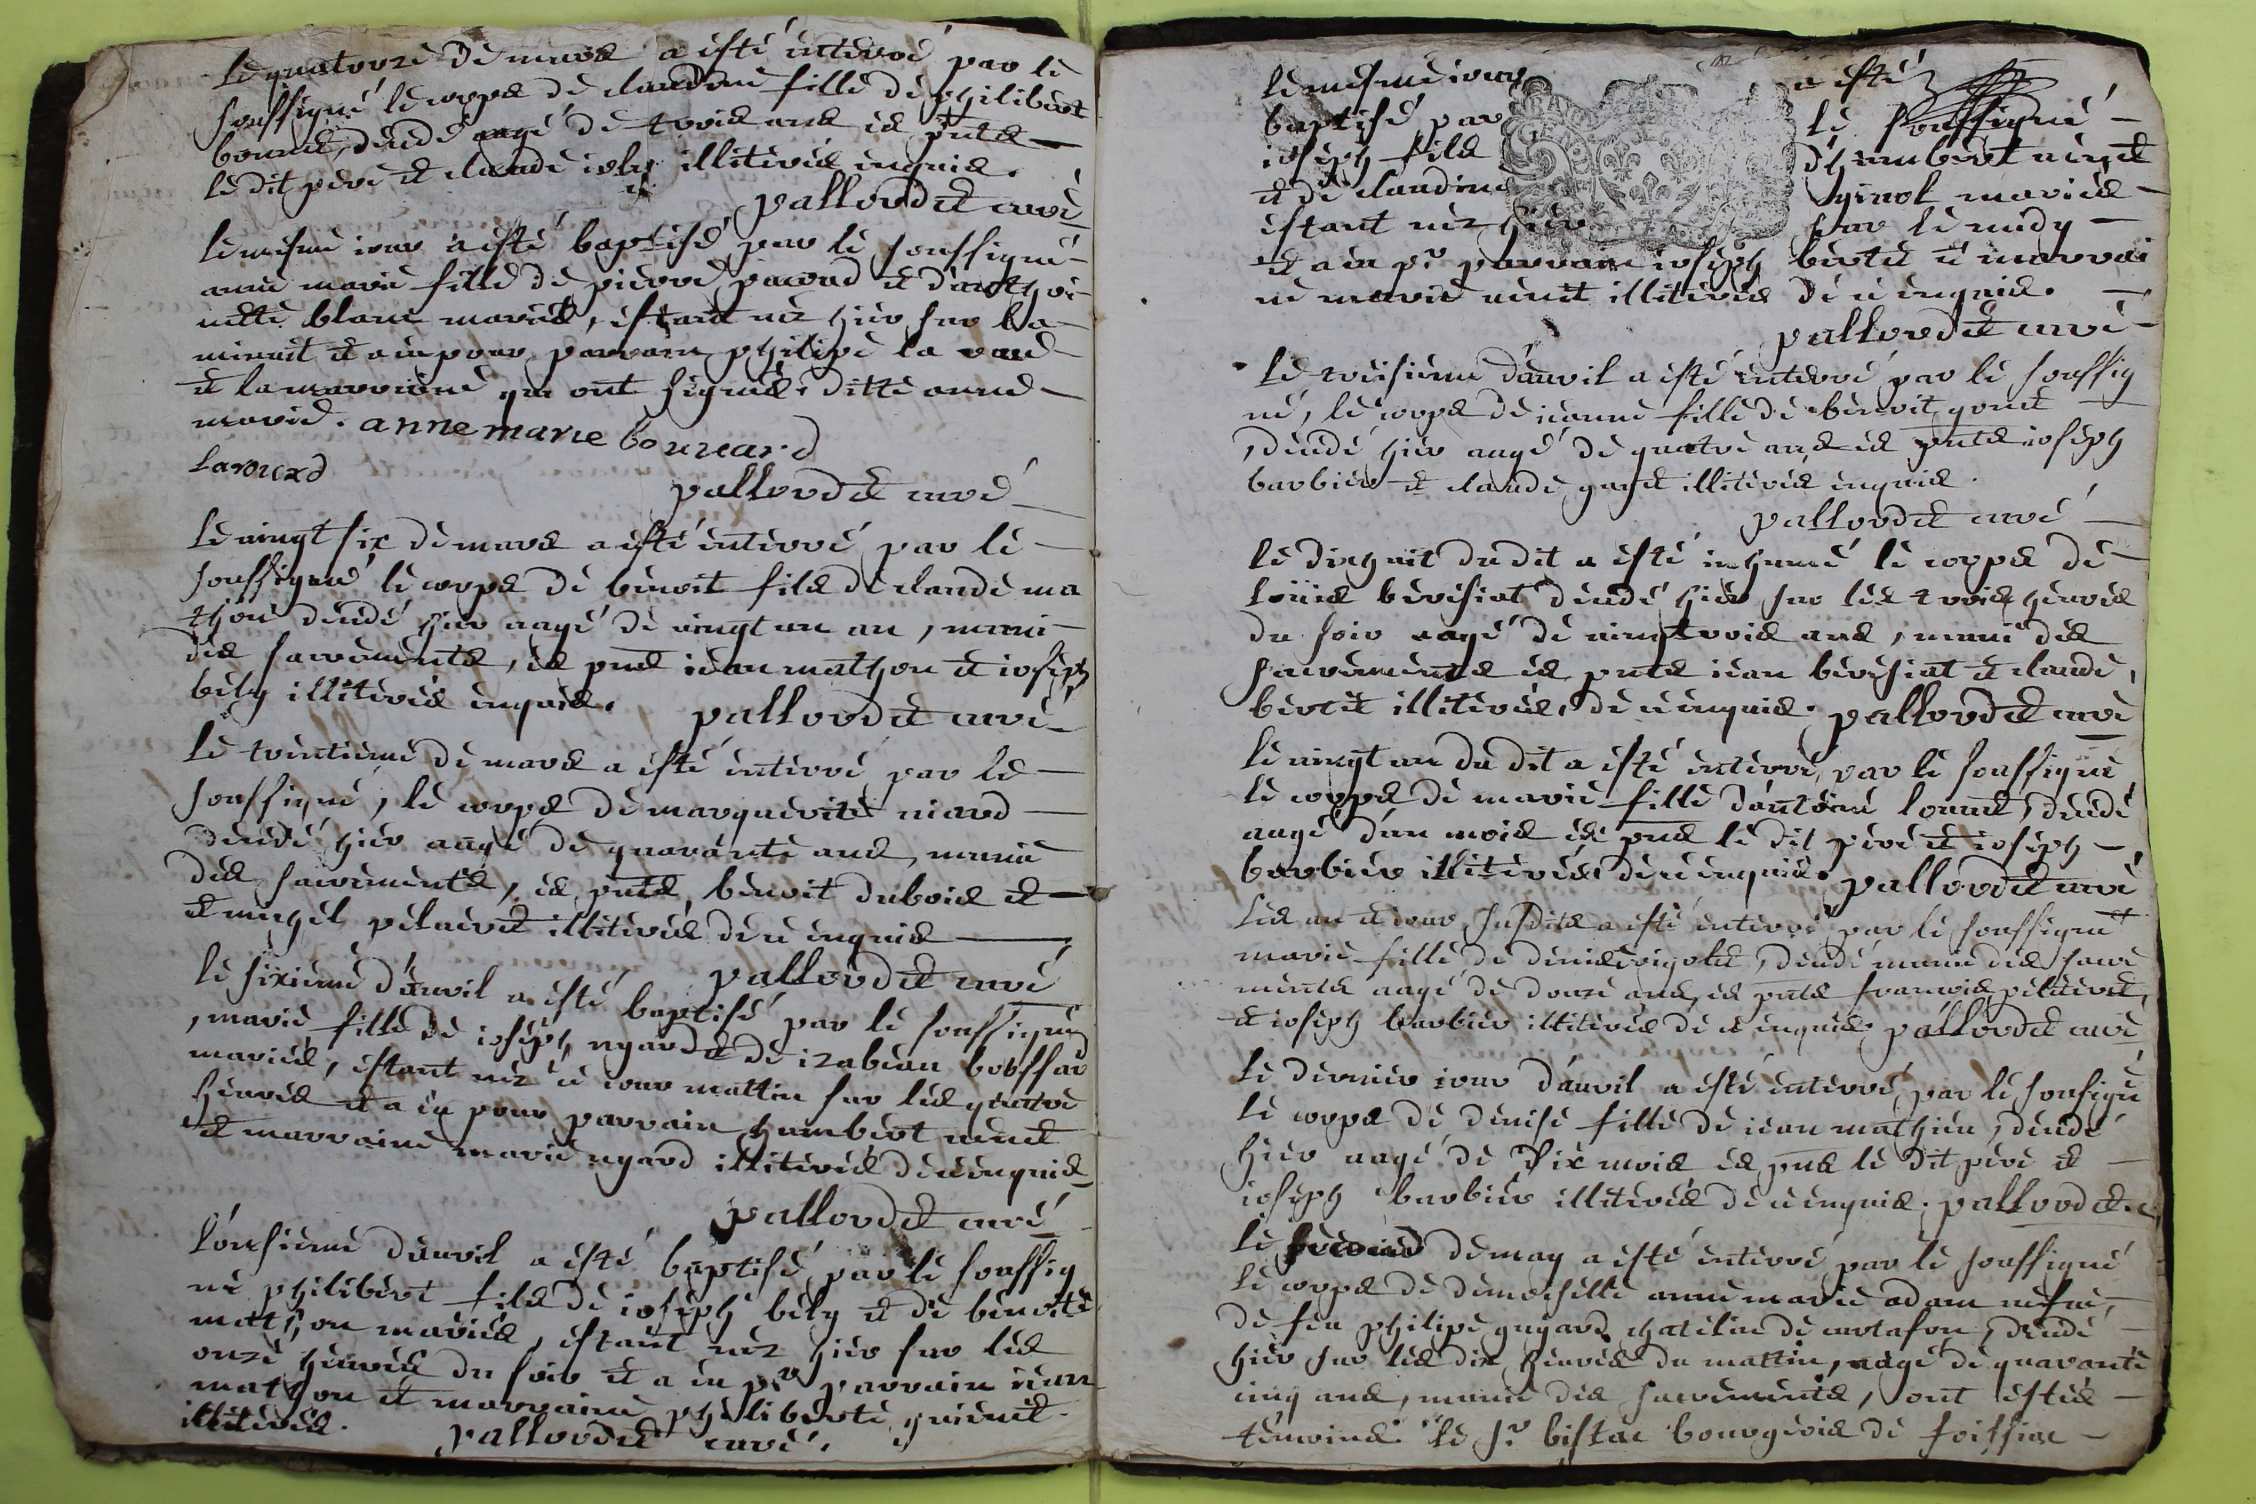 Le quatorze de mars a esté enterré par le
soussigné le corps de claudine fille de philibert
bonnet, décédé aagé de trois ans és pnts
le dit pere et claude ioly illiterés enquis.
pallordet curé
le mesme iour a esté baptisé par le soussigné
anne marie fille de pierre pacoud et d'anthoi
nette blanc mariés, estant née hier sur la
minuit et a eu pour parrain philipe la
et la marraine qui ont signés, ditte anne
marie. anne marie
pallordet curé
le vingt six de mars a esté enterré par le
soussigné le corps de benoit fils de claude ma
thon décédé hier aagé de vingt un an, muni
des sacrements, és pnts iean mathon et ioseph
bely illiterés enquis. pallordet curé
le trentieme de mars a esté enterré par le
soussigné, le corps de marguerite niard
décédé hier aagé de quarante ans, munie
des sacrements, és pnts, benoit dubois et
et illiterés de ce enquis
pallordet curé
le sixieme d'auril a esté baptisé par le soussigné
, marie fille de ioseph nyard et de izabeau
mariés, estant née ce iour mattin sur les quatre
heures et a eu pour parrain humbert
et marraine marie nyard illiterés de ce enquis
pallordet curé
l'onsieme d'auril a esté baptisé par le soussig
né philibert fils de ioseph bely et de benoite
matthon mariés, estant néz hier sur les
onze heures du soir et a eu pr parrain iean
mathon et marraine philiberte
illiterés. pallordet curé.
le mesme iour a esté
baptisé par le soussigné
ioseph fils d'humbert
et de claudine mariés
estant néz hier sur le midy
et a eu pr parrain ioseph bertet et marrai
ne marie illiterés de ce enquis.
pallordet curé
le treisieme d'auril a esté enterré par le soussig
né, le corps de ieanne fille de benoit gonet
, décédé hier aagé de quatre ans és pnts ioseph
barbier et claude illiterés enquis.
pallordet curé
le dixhuit du dit a esté inhumé le corps de
loüis beresiat décédé hier sur les trois heures
du soir aagé de vingt trois ans, muni des
sacrements és pnts iean beresiat et claude,
bertet illiterés, de ce enquis. pallordet curé
le vingt un du dit a esté enterré, par le soussigné
le corps de marie fille d'antoine décédé
aagé d'un mois és pnts le dit pere et ioseph
barbier illiterés de ce enquis. pallordet curé
les an et iour susdits a esté enterré par le soussigné
marie fille de denis, décédé munie des sacre
ments aagé de douze ans, és pnts francois
et ioseph barbier illiterés de ce enquis. pallordet curé
le dernier iour d'auril a esté enterré par le sousigné
le corps de denise fille de iean mathieu, décédé
hier aagé de dix mois és pnts le dit pere et
ioseph barbier illiterés de ce enquis. pallordet c
le de may a esté enterré par le soussigné
le corps de demoiselle anne marie adam
de feu philipe guyard chatelin de, décédé
hier sur les dix heures du mattin, aagé de quarante
cinq ans, munie des sacrements, ont estés
témoins: le sr bistac bourgeois de foissiac